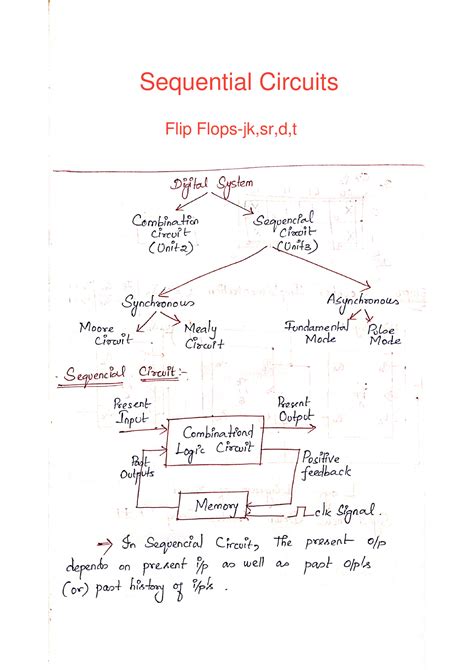 Sequential Circuits
Flip Flops-jk,sr,d,t
Digital System
Combination
Circuit
(Unit2)
Sequencial
Circuit
(Unit3)
Synchronous
Asynchronous
Moore
Circuit
Mealy
Circuit
Fundamental
Mode
Pulse
Mode
Sequencial Circuit:-
Present
Input
Present
Output
Combinational
Logic Circuit
Past
Outputs
Positive
feedback
Memory
clk Signal.
→ In Sequencial Circuit, The present o/p
depends on present i/p as well as past o/p's
(or) past history of i/p's.